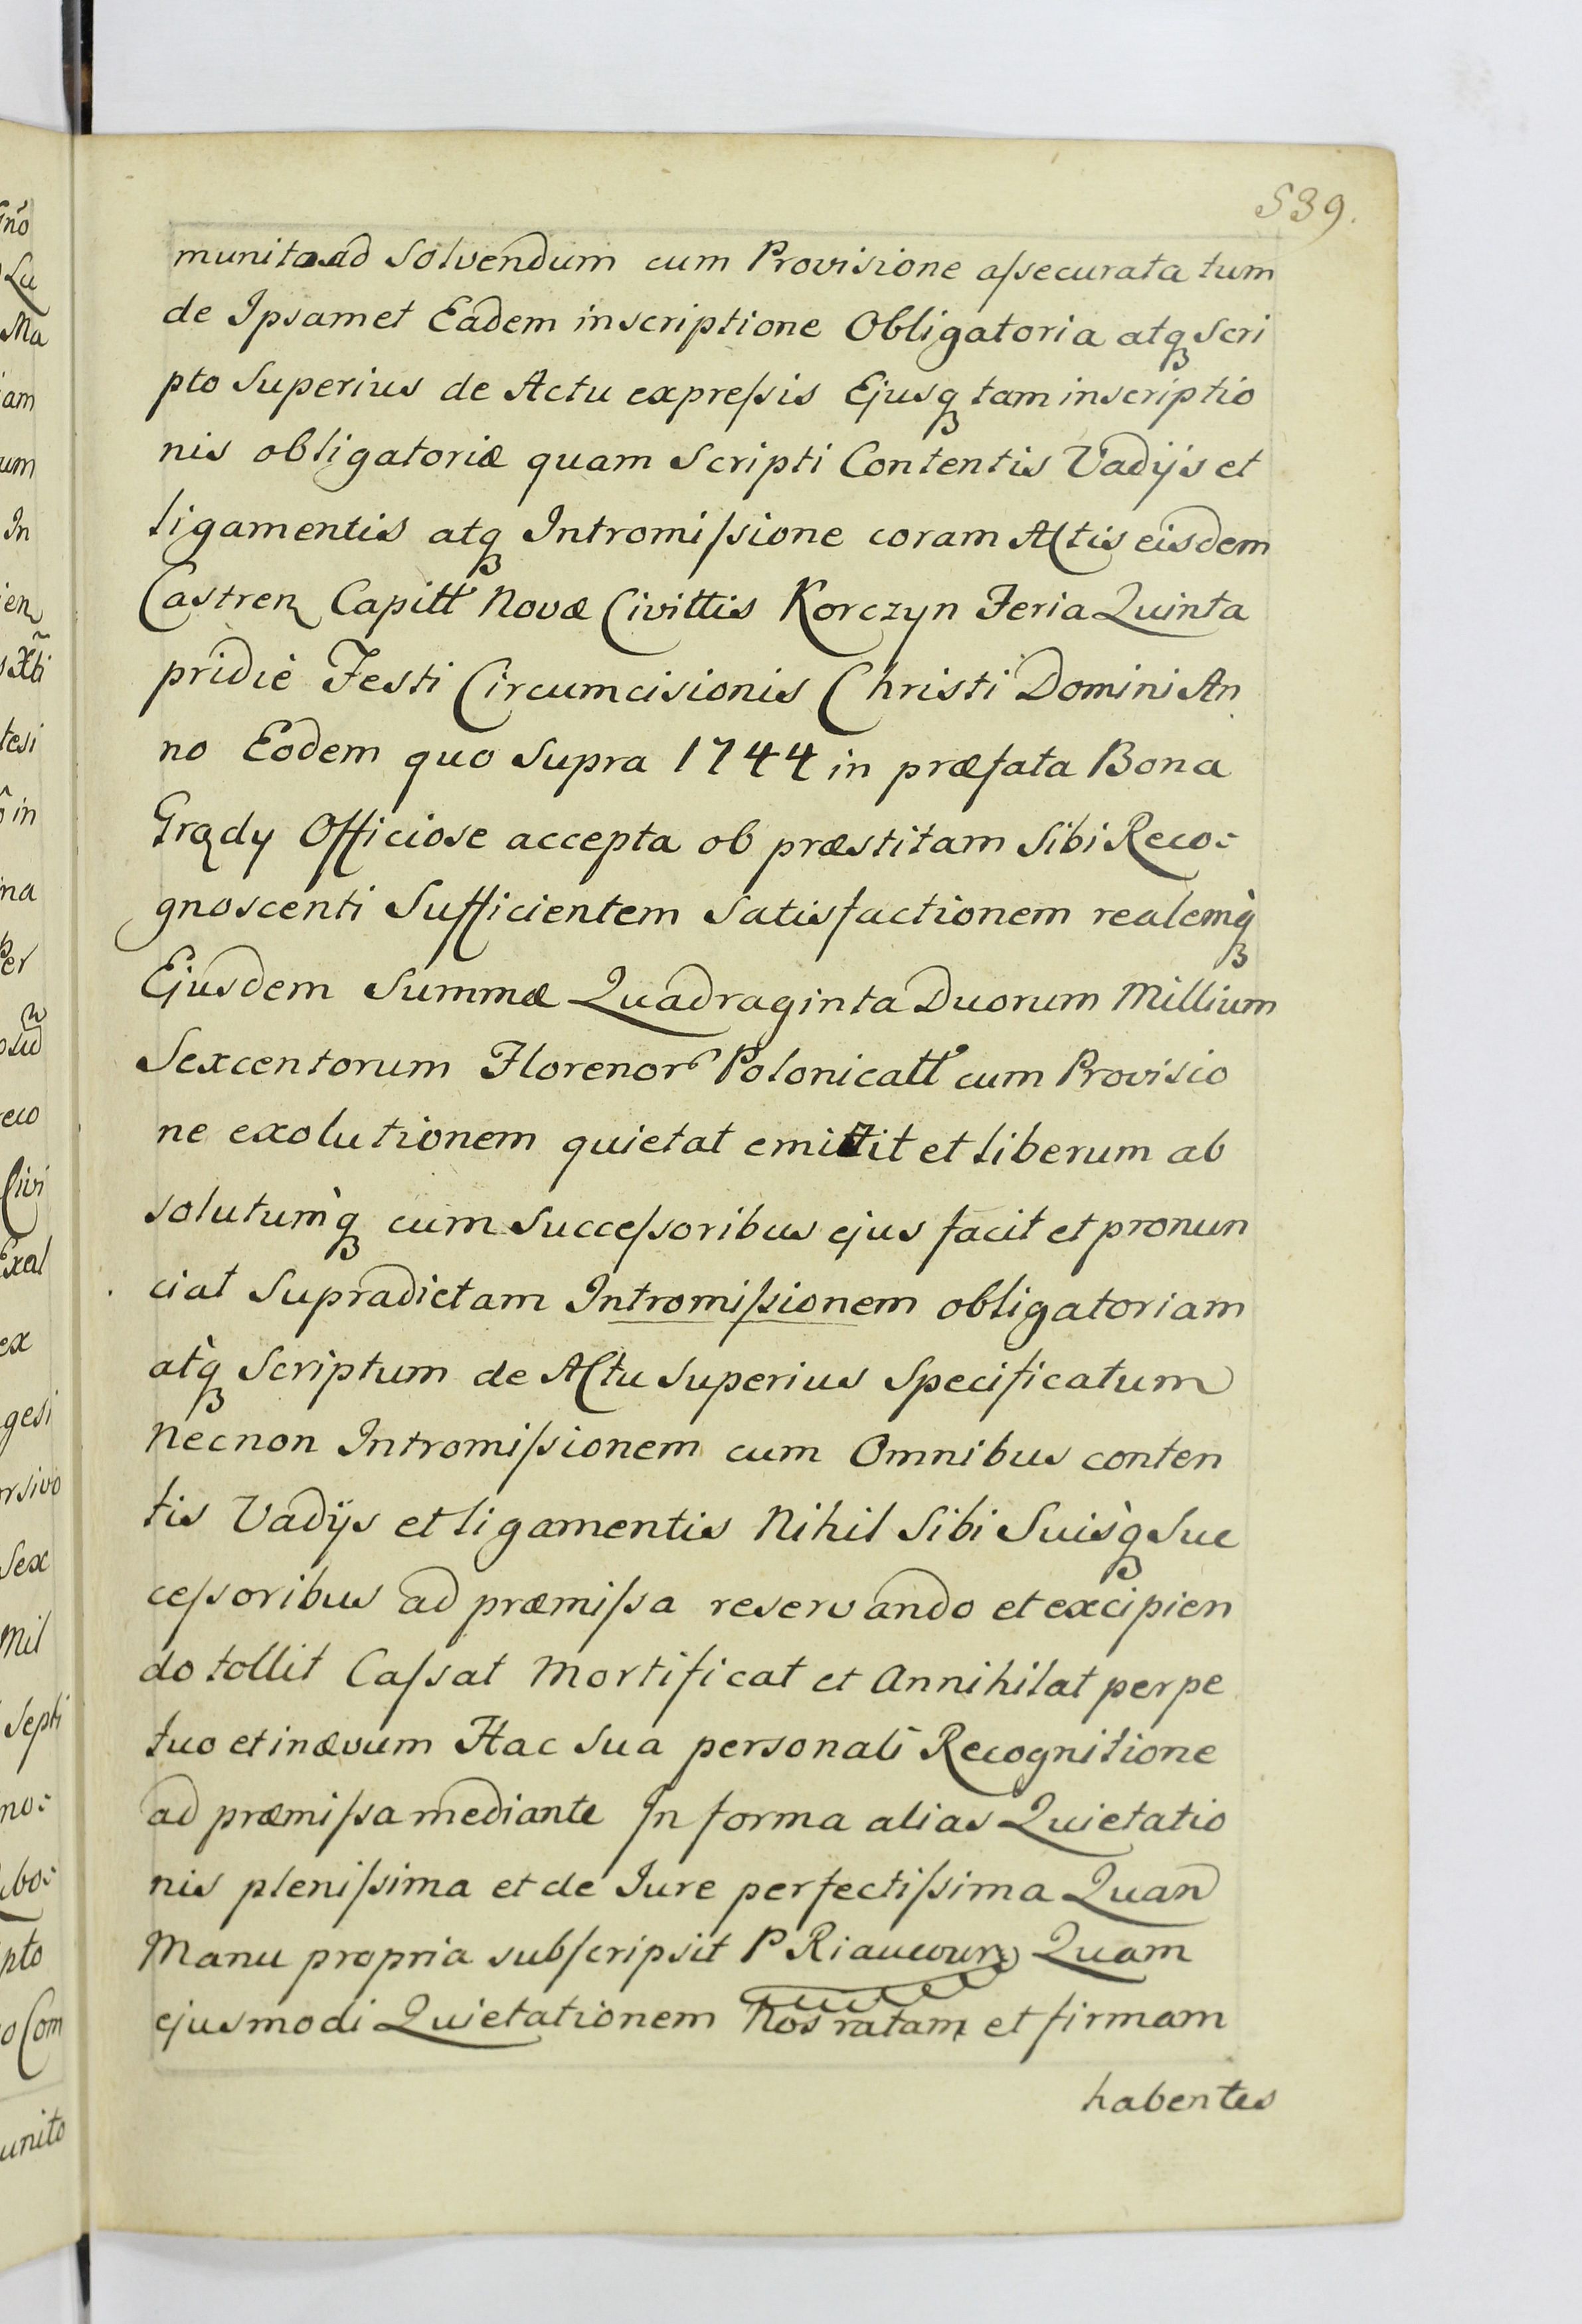 539.
munito ad Solvendum cum Provisione aſsecurata tum
de Ipsamet Eadem inscriptione Obligatoria atqꝫ Scri
pto Superius de Actu expreſsis Ejusqꝫ tam inscriptio
nis obligatoriæ quam Scripti Contentis Vadijs et
ligamentis atqꝫ Intromiſsione coram Actis eisdem
Castren Capittl Novæ Civittis Korczyn Feria Quinta
pridie Festi Circumcisionis Christi Domini An
no Eodem quo Supra 1744 in præfata Bona
Grądy Officiose accepta ob præstitam Sibi Reco:
gnoscenti Sufficientem Satisfactionem realemqꝫ
Ejusdem Summæ Quadraginta Duorum Millium
Sexcentorum Florenor Polonicatl cum Provisio
ne exolutionem quietat emittit et liberum ab
solutumqꝫ cum Succeſsoribus ejus facit et pronun
ciat Supradictam Intromiſsionem obligatoriam
atqꝫ Scriptum de Actu Superius Specificatum
Necnon Intromiſsionem cum Omnibus conten
tis Vadijs et ligamentis Nihil Sibi Suisqꝫ Suc
ceſsoribus ad præmiſsa reservando et excipien
do tollit Caſsat Mortificat et Annihilat perpe
tuo et in ævum Hac Sua personali Recognitione
ad præmiſsa mediante In forma alias Quietatio
nis pleniſsima et de Iure perfectiſsima Quan
Manu propria subſcripsit P Riaucour Quam
ejusmodi Quietationem Nos ratam et firmam
habentes